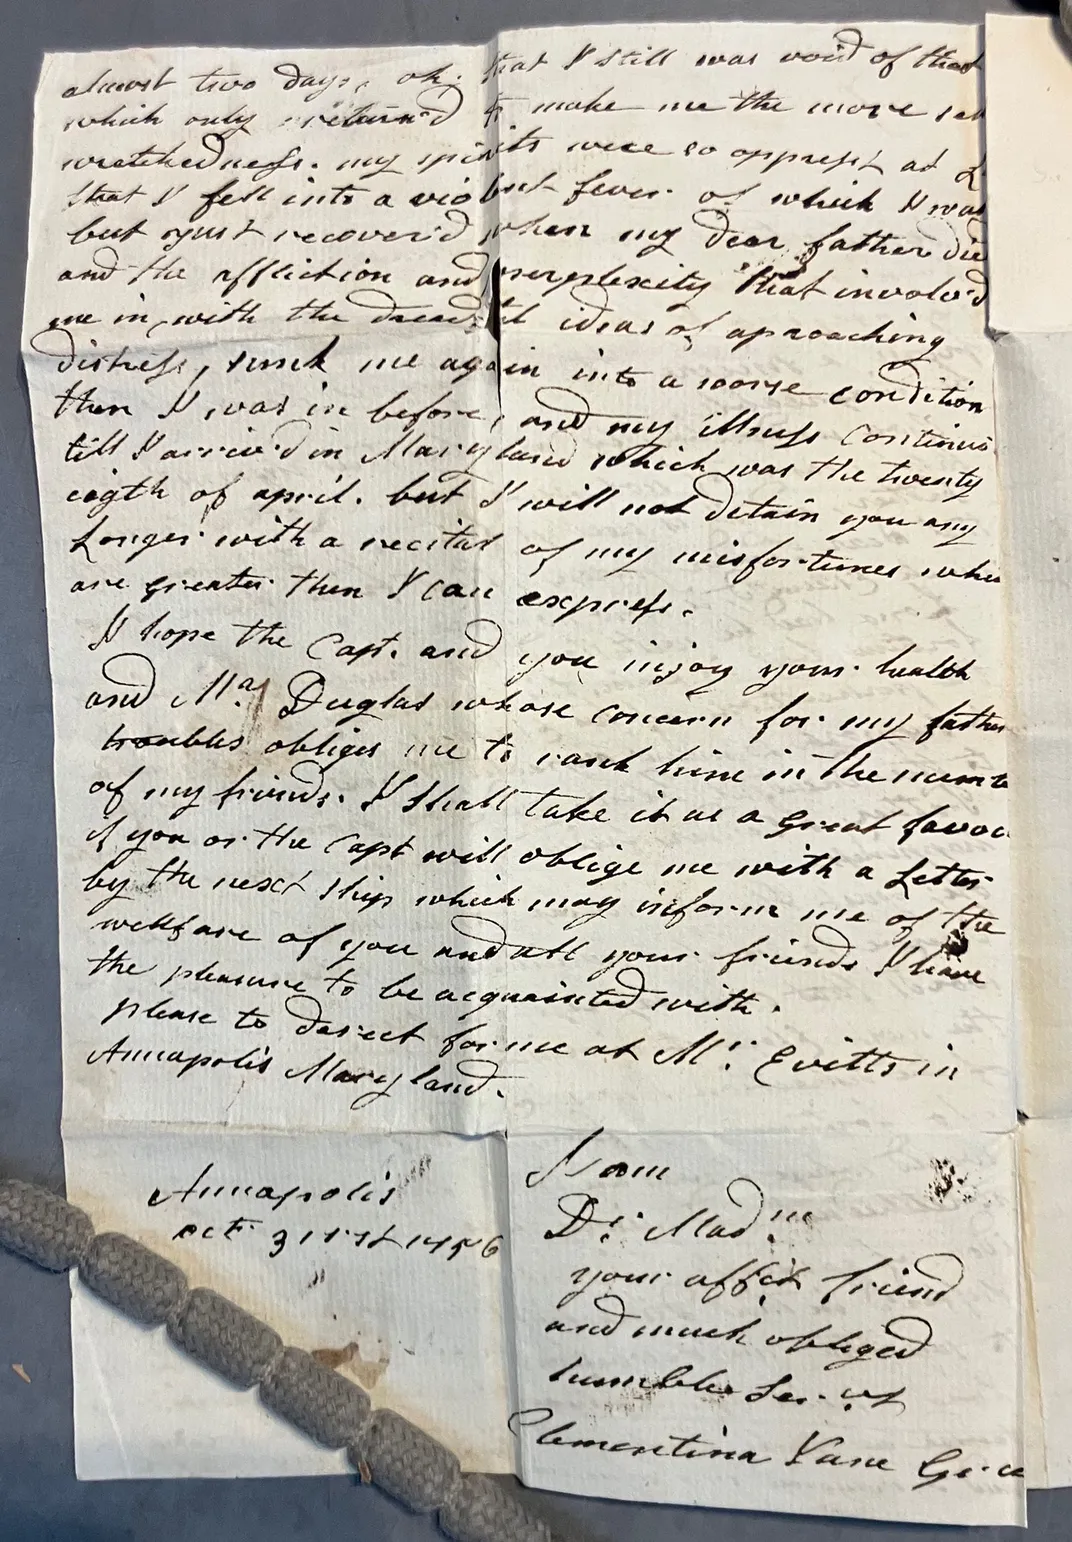 almost two days, oh: that I still was void of that
which only return'd to make me the more
wretchedness. my spirits were so opprest at
that I fell into a violent fever of which I was
but just recover'd when my dear father die
and the affliction and perplexity that involv'd
me in, with the dreadful ideas of aproaching
distress, sunk me again into a worse condition
then I was in before, and my illness continu
till I arriv'd in Maryland which was the twenty
eigth of april. but I will not detain you any
Longer with a recital of my misfortunes whi
are greater then I can express.
I hope the Capt. and you injoy your health
and Duglas whose concern for my father
troubles obliges me to rank him in the numbe
of my friends. I shall take it as a great favou
if you or the Capt will oblige me with a Letter
by the next ship which may inform me of the
wellfare of you and all your friends I have
the pleasure to be acquainted with.
please to derect for me at Mr. Evitts in
Annapolis Maryland.
Annapolis
oct. 31st 1756
I am
Dr. Madm
your affct friend
and much obliged
humble Ser.vt
Clementina Jane